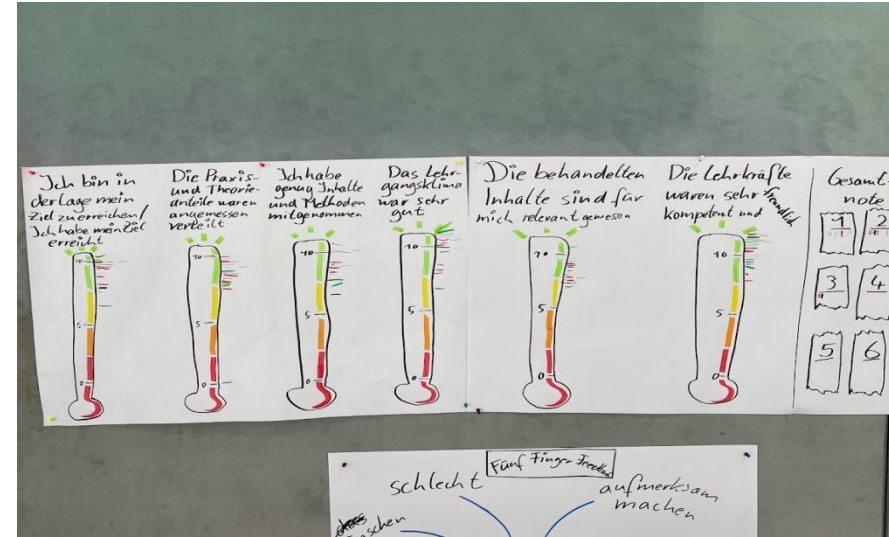 Ich bin in
der Lage mein
Ziel zu erreichen /
Ich habe mein Ziel
erreicht
10
5
0
Die Praxis-
und Theorie-
anteile waren
angemessen
verteilt
10
5
0
Ich habe
genug Inhalte
und Methoden
mitgenommen
10
5
0
Das Lehr-
gangsklima
war sehr
gut
10
5
0
Die behandelten
Inhalte sind für
mich relevant gewesen
10
5
0
Die Lehrkräfte
waren sehr freundlich
kompetent und
10
5
0
Gesamt-
note
1 2
3 4
5 6
Fünf Finger
schlecht
aufmerksam
machen